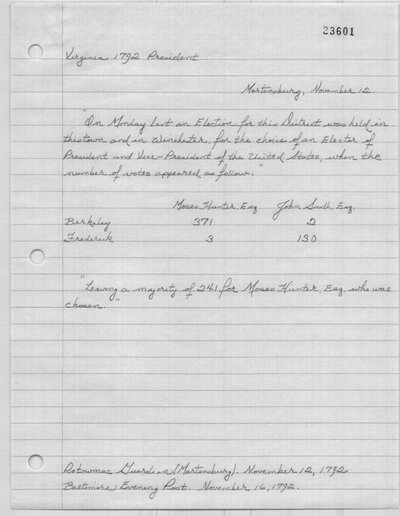 23601
Virginia 1792 President
Martinsburg, November 12
"On Monday last an Election for this District was held in
this town and in Winchester, for the choice of an Elector of
President and Vice-President of the United States, when the
number of votes appeared as follow."
Moses Hunter, Esq John Smith, Esq
Berkeley 371 2
Frederick 3 130
"Leaving a majority of 241 for Moses Hunter, Esq. who was
chosen."
Potowmac Guardian (Martinsburg). November 12, 1792
Baltimore Evening Post. November 16, 1792.